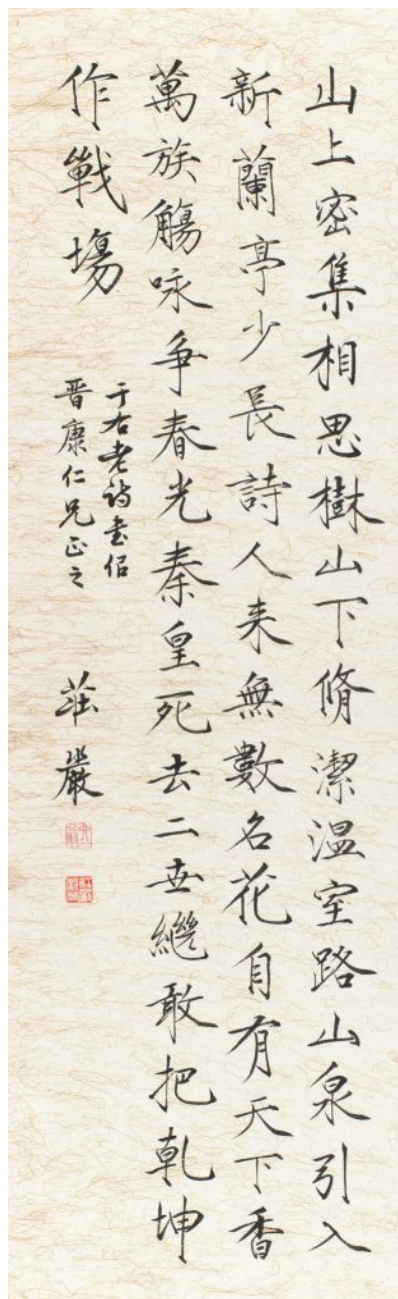 山上密集相思樹山下脩潔溫室路山泉引入
新蘭亭少長詩人来無數名花自有天下香
萬族觴咏争春光秦皇死去二世繼敢把乾坤
作戰場
于右老詩書侣
晋康仁兄正之
莊嚴